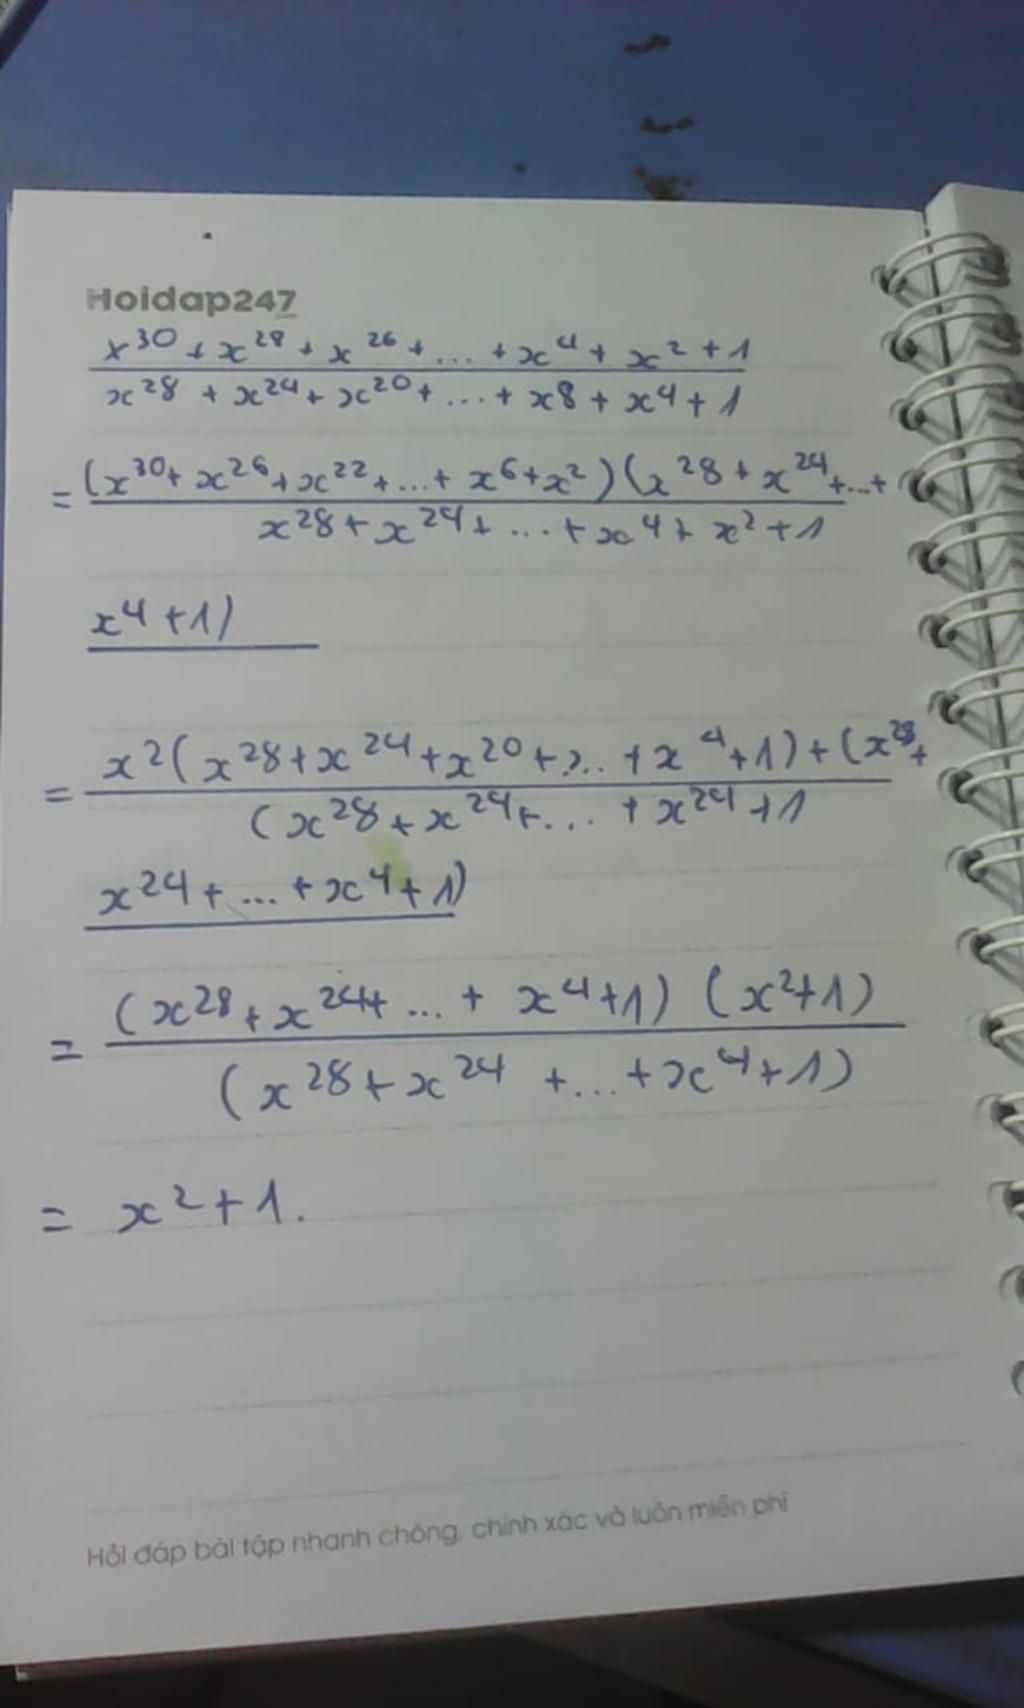 Hoidap247
x^30 + x^28 + x^26 + ... + x^4 + x^2 + 1
x^28 + x^24 + x^20 + ... + x^8 + x^4 + 1
= (x^30 + x^26 + x^22 + ... + x^6 + x^2) (x^28 + x^24 + ... +
x^28 + x^24 + ... + x^4 + x^2 + 1
x^4 + 1)
= x^2 (x^28 + x^24 + x^20 + ... + x^4 + 1) + (x^28 +
(x^28 + x^24 + ... + x^24 + 1
x^24 + ... + x^4 + 1)
= (x^28 + x^24 + ... + x^4 + 1) (x^2 + 1)
(x^28 + x^24 + ... + x^4 + 1)
= x^2 + 1.
Hỏi đáp bài tập nhanh chóng, chính xác và luôn miễn phí